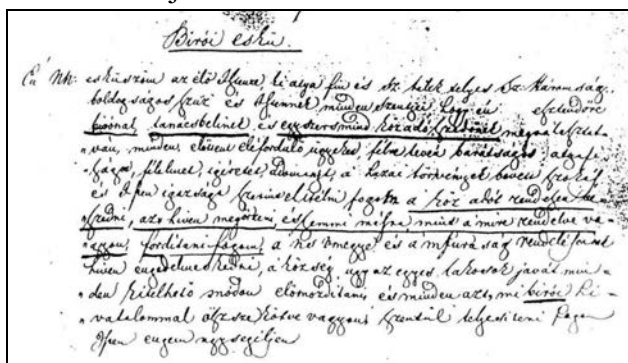 Birói eskü.
Én NN: esküszöm az élő Istenre, ki atya fiu és sz. lélek teljes Sz. Háromság,
boldogságos szűz és Istennek minden szentjei. Hogy én esztendőre
birónak, tanácsbelinek és egyszersmind közadó szedőnek megválasztat-
van, minden, előmbe előforduló ügyeket, félre tevén barátságot, atyafi-
ságot, félelmet, igéretet, adományt, a hazai törvények bővebb szokás
és Isten igazsága szerint elitélni fogok a köz adót rendesen be-
szedni, azt hiven megőrzeni, és semmi másra mint a mire rendelve va-
gyon, fordítani fogom, a ns vmegye és a mfuraság rendeléseinek
hiven engedelmeskedni, a község, ugy az egyes lakosok javát min-
den kitelhető módon előmozdítani, és minden azt, mi birói hi-
vatalommal össze kötve vagyon, szentül teljesíteni fogom
Isten engem ugy segéljen